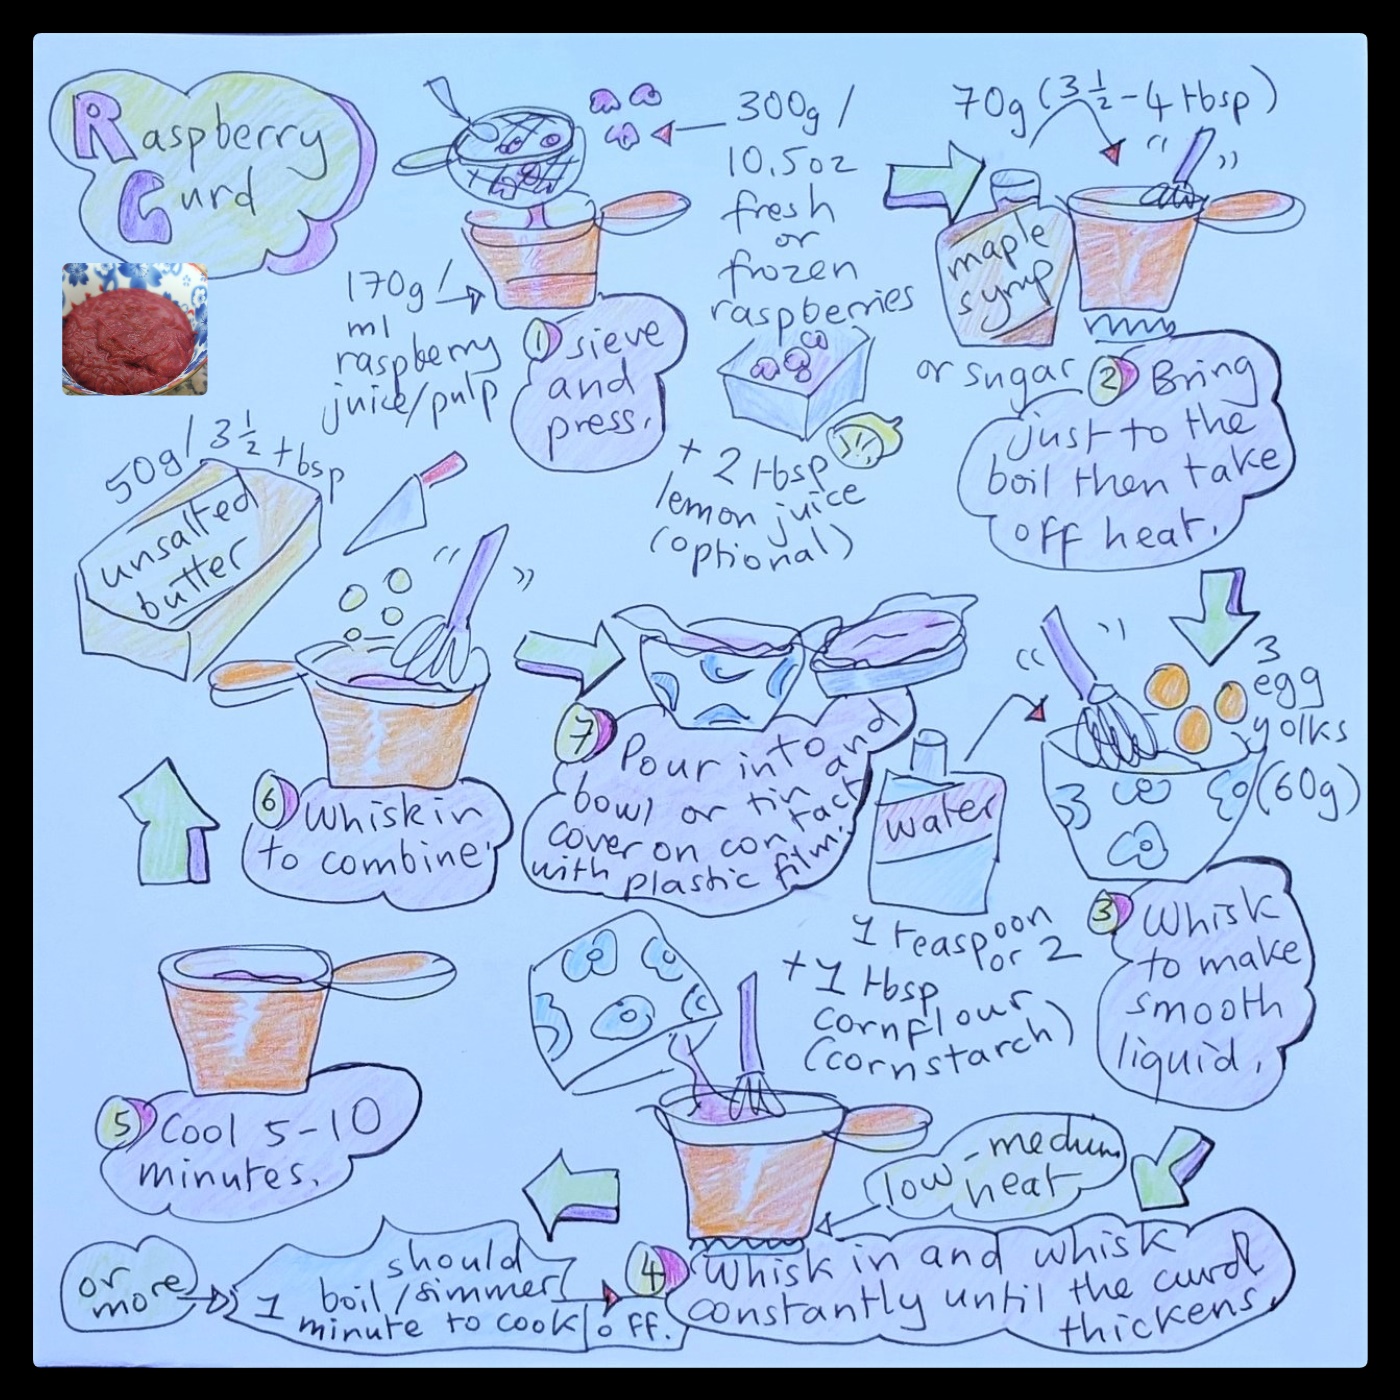 Raspberry
Curd
300g /
10.5oz
fresh
or
frozen
raspberries
+ 2 tbsp
lemon juice
(optional)
170g /
ml
raspberry
juice/pulp
1 sieve
and
press.
70g (3 1/2 - 4 tbsp)
maple
syrup
or sugar
2 Bring
just to the
boil then take
off heat.
3
egg
yolks
(60g)
water
1 teaspoon
or 2
+ 1 tbsp
cornflour
(cornstarch)
3 Whisk
to make
smooth
liquid.
low-medium
heat
4 Whisk in and whisk
constantly until the curd
thickens.
or
more
should
boil/simmer
1 minute to cook off.
5 Cool 5-10
minutes.
50g / 3 1/2 tbsp
unsalted
butter
6 Whisk in
to combine.
7 Pour into
bowl or tin and
cover on contact
with plastic film.